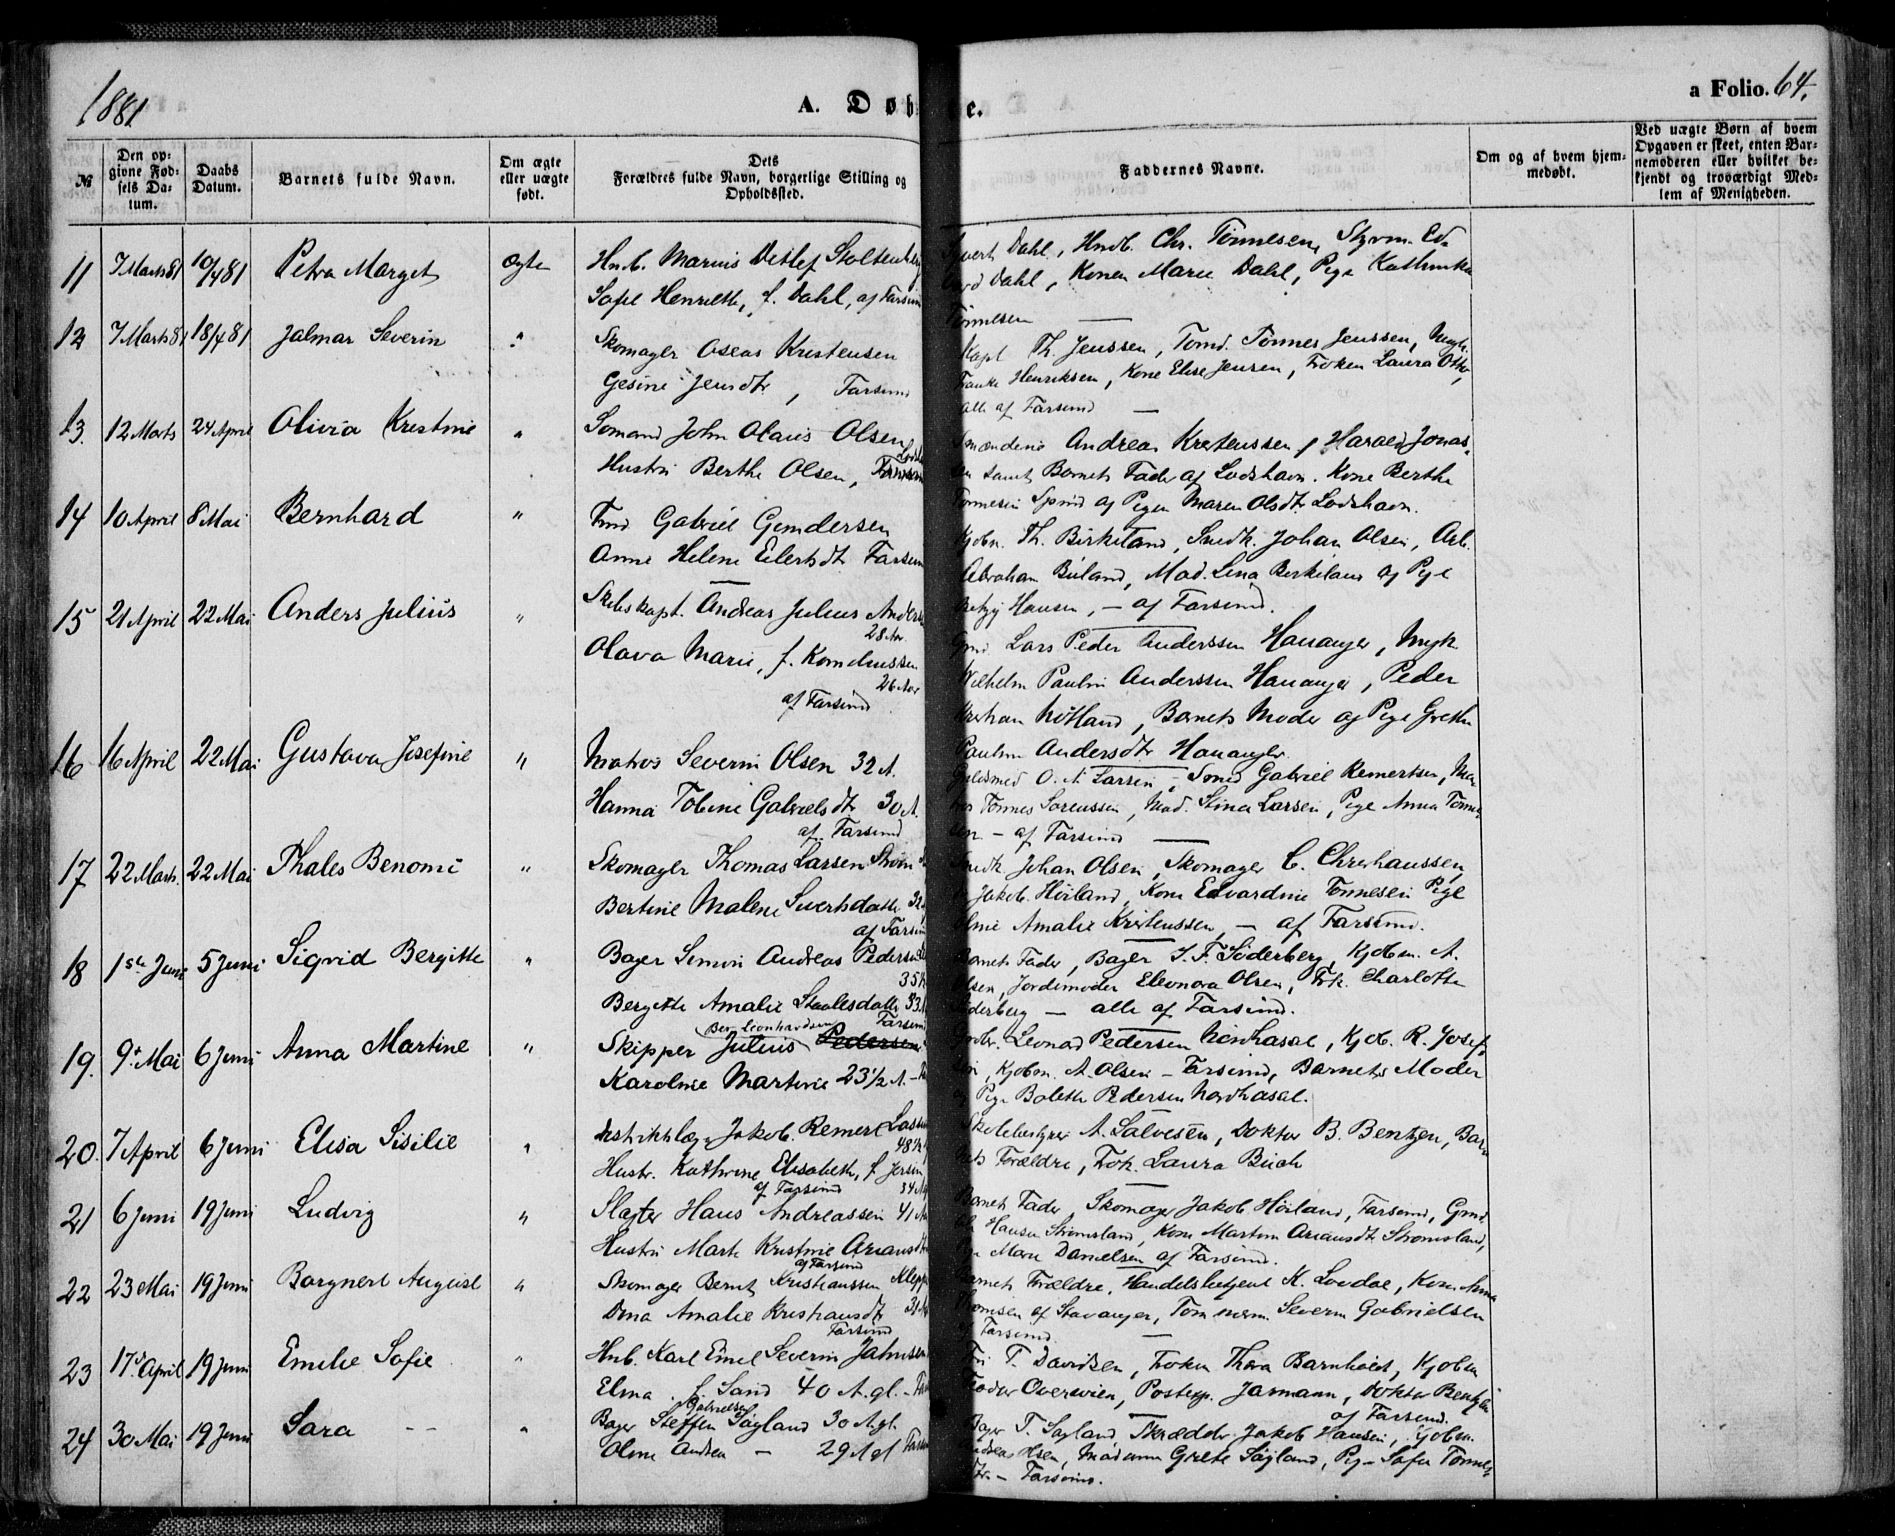 1881
A. Døb
e.
a Folio. 64.
№
Den op-
givne Fød-
sels Da-
tum.
Daabs
Datum.
Barnets fulde Navn.
Om ægte
eller uægte
født.
Dets
Forældres fulde Navn, borgerlige Stilling og
Opholdssted.
Faddernes Navne.
Om og af hvem hjem-
medøbt.
Ved uægte Børn af hvem
Opgaven er skeet, enten Bar-
nemoderen eller hvilket be-
kjendt og troværdigt Med-
lem af Menigheden.
11 7 Marts 81 10/4 81 Petra Marget Ægte Hnb. Marius Detlef Stoltenberg
Sofie Henriette, f. Dahl, af Farsund
Sivert Dahl, Hndb. Chr. Tönnesen, Styrm. Ed-
vard Dahl, Konen Marie Dahl, Pige Kathinka
Tönnesen
12 7 Marts 81 18/4 81 Jalmar Severin " Skomager Oseas Kristensen
Gesine Jensdtr, Farsund
Kapt Th. Jenssen, Tomd. Tönnes Jenssen, Ungk.
Henriksen, Kone Elise Jensen, Fröken Laura Otto,
alle af Farsund
13. 12 Marts 24 April Olivia Kristine " Sömand John Olaus Olsen
Hustru Berthe Olsen,
Andreas Kristenssen, Harald Jonas-
sen samt Barnets Fader af Lodshavn. Kone Berthe
Tönnesen Spind og Pigen Maren Olsdtr Lodshavn.
14 10 April 8 Mai Bernhard " Gabriel Gundersen
Anne Helene Eilertsdtr Farsun
Kjøbm. Th. Birkeland, Snedk. Johan Olsen, Arb.
Abraham Büland, Mad. Lina Berkeland og Pige
Betzy Hansen, — af Farsund.
15 21 April 22 Mai Anders Julius " Skibskapt. Andreas Julius Anders
28 Aar
Olava Marie, f. Kornelussen
26 Aar
af Farsund
Gmd. Lars Peder Anderssen Hananger, Ungk.
Wilhelm Paulin Anderssen Hananger, Peder
Kristian Nötland, Barnets Moder og Pige Grethe
Pauline Andersdtr Hananger.
16 16 April 22 Mai Gustava Josefine " Matros Severin Olsen 32 A.
Hanna Tobine Gabrielsdtr 30 A.
af Farsund
Guldsmed O. A. Larsen, Smed Gabriel Reinertsen, Ma-
tros Tönnes Sorenssen, Mad. Stina Larsen, Pige Anna Tönne-
sen. — af Farsund
17 22 Marts 22 Mai Thales Benomi " Skomager Thomas Larsen
Bertine Malene Sivertsdatter 32
af Farsun
Snedk. Johan Olsen, Skomager C. Christianssen,
Jakob Höiland, Kone Edvardine Tönnesen Pige
Amalie Kristenssen, — af Farsund.
18 1ste Juni 5 Juni Sigrid Bergitte " Bager Simon Andreas Pedersen
35
Bergitte Amalie Staalesdatter 33
Farsund
Barnets Fader, Bager S. F. Söderberg, Kjøbm. A.
Olsen, Jordemoder Eleonora Olsen, Frk. Charlotte
Söderberg — alle af Farsund.
19. 9t Mai 6 Juni Anna Martine " Skipper Julius Pedersen
Berg Leonhardsen
Karoline Martine 23½ A.
Leonard Pedersen Nordhasal, Kjøb. R. Josef-
sen, Kjøbm. A. Olsen — Farsund, Barnets Moder
og Pige Bolette Pedersen Nordhasal.
20. 7 April 6 Juni Elisa Sisilie " Distriktslæge Jakob Reinert Lassen
48
Hustr. Kathrine Elisabeth, f. Jersin
af Farsund 34
Skolebestyrer A. Salvesen, Doktor B. Bentzen, Bar-
nets Forældre, Frk. Laura Buch
21 6 Juni 19 Juni Ludvig " Slagter Hans Andreassen 41
Hustru Marte Kristine Ariansdtr
af Farsund
Barnets Fader, Skomager Jakob Höiland, Farsund, Gmd.
Hansen Strömsland, Kone Martine Ariansdtr Strömsland,
Marie Danielsen af Farsund.
22 23 Mai 19 Juni Bargnert August " Skomager Bernt Kristianssen Klepp
Dina Amalie Kristiansdtr 31
Farsund
Barnets Forældre, Handelsbetjent K. Lovdal, Kone Anna
Thomsen af Stavanger, Tömmerm. Severin Gabrielsen
af Farsund.
23 17de April 19 Juni Emilie Sofie " Hnb. Karl Emil Severin Jahnsen
Elina f. Sand 40 A. gl.
T. Davidsen, Frøken Thora Barnholdt, Kjøbm
Teodor Overvien, Postexp. Jarmann, Doktor Bentzen
af Farsund.
24 30 Mai 19 Juni Sara " Bager Steffen Sägland 30 A gl.
Gabrielsen
Oline Andrea — 29 A gl
Bager T. Sagland Skrædder Jakob Hansen, Kjøbm.
Olsen, Madamm Grete Sägland, Pige Sofie Tönnes-
dtr. — Farsund.